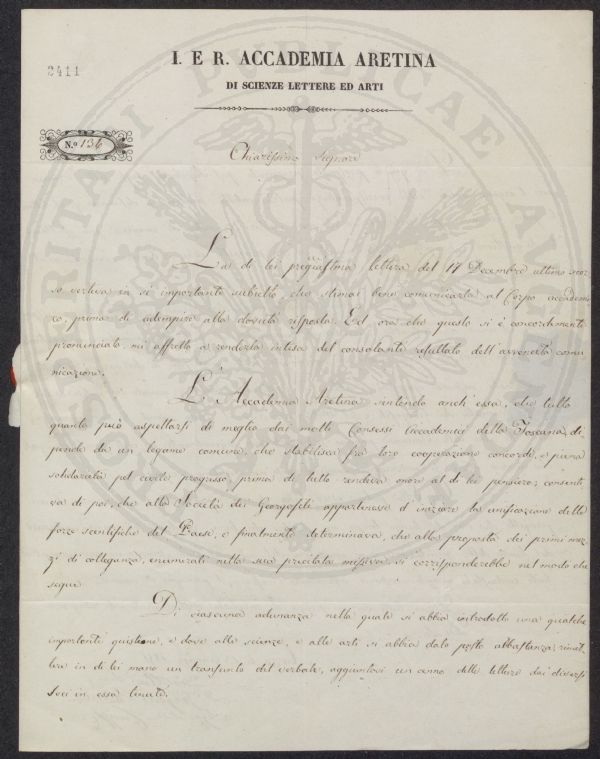 2411
I. E R. ACCADEMIA ARETINA
DI SCIENZE LETTERE ED ARTI
N.o 136
Chiarissimo Signore
La di lei pregiatissima lettera del 17 Decembre ultimo scor-
so verteva in sì importante subietto, che stimai bene comunicarla al Corpo accademi-
co, prima di adempire alla dovuta risposta. Ed ora che questo si è concordemente
pronunciato, mi affretto a renderla intesa del consolante resultato dell'avvenuta comu-
nicazione.
L'Accademia Aretina sentendo anch'essa, che tutto
quanto può aspettarsi di meglio dai molti Consessi Accademici della Toscana, di-
pende da un legame comune, che stabilisca fra loro cooperazione concorde, e piena
solidarietà pel civile progresso, prima di tutto rendeva onore al di lei pensiero; consenti-
va di poi, che alla Società dei Georgofili appartenesse d'iniziare la unificazione delle
forze scientifiche del Paese, e finalmente determinava, che alla proposta dei primi mez-
zi di colleganza, enumerati nella sua precitata missiva, si corrisponderebbe nel modo che
segue
Di ciascuna adunanza nella quale si abbia introdotto una qualche
importante quistione, e dove alle scienze, e alle arti si abbia dato posto abbastanza, rimet-
terà in di lei mano un transunto del verbale, aggiuntovi un cenno delle letture dai diversi
Soci in essa tenute.